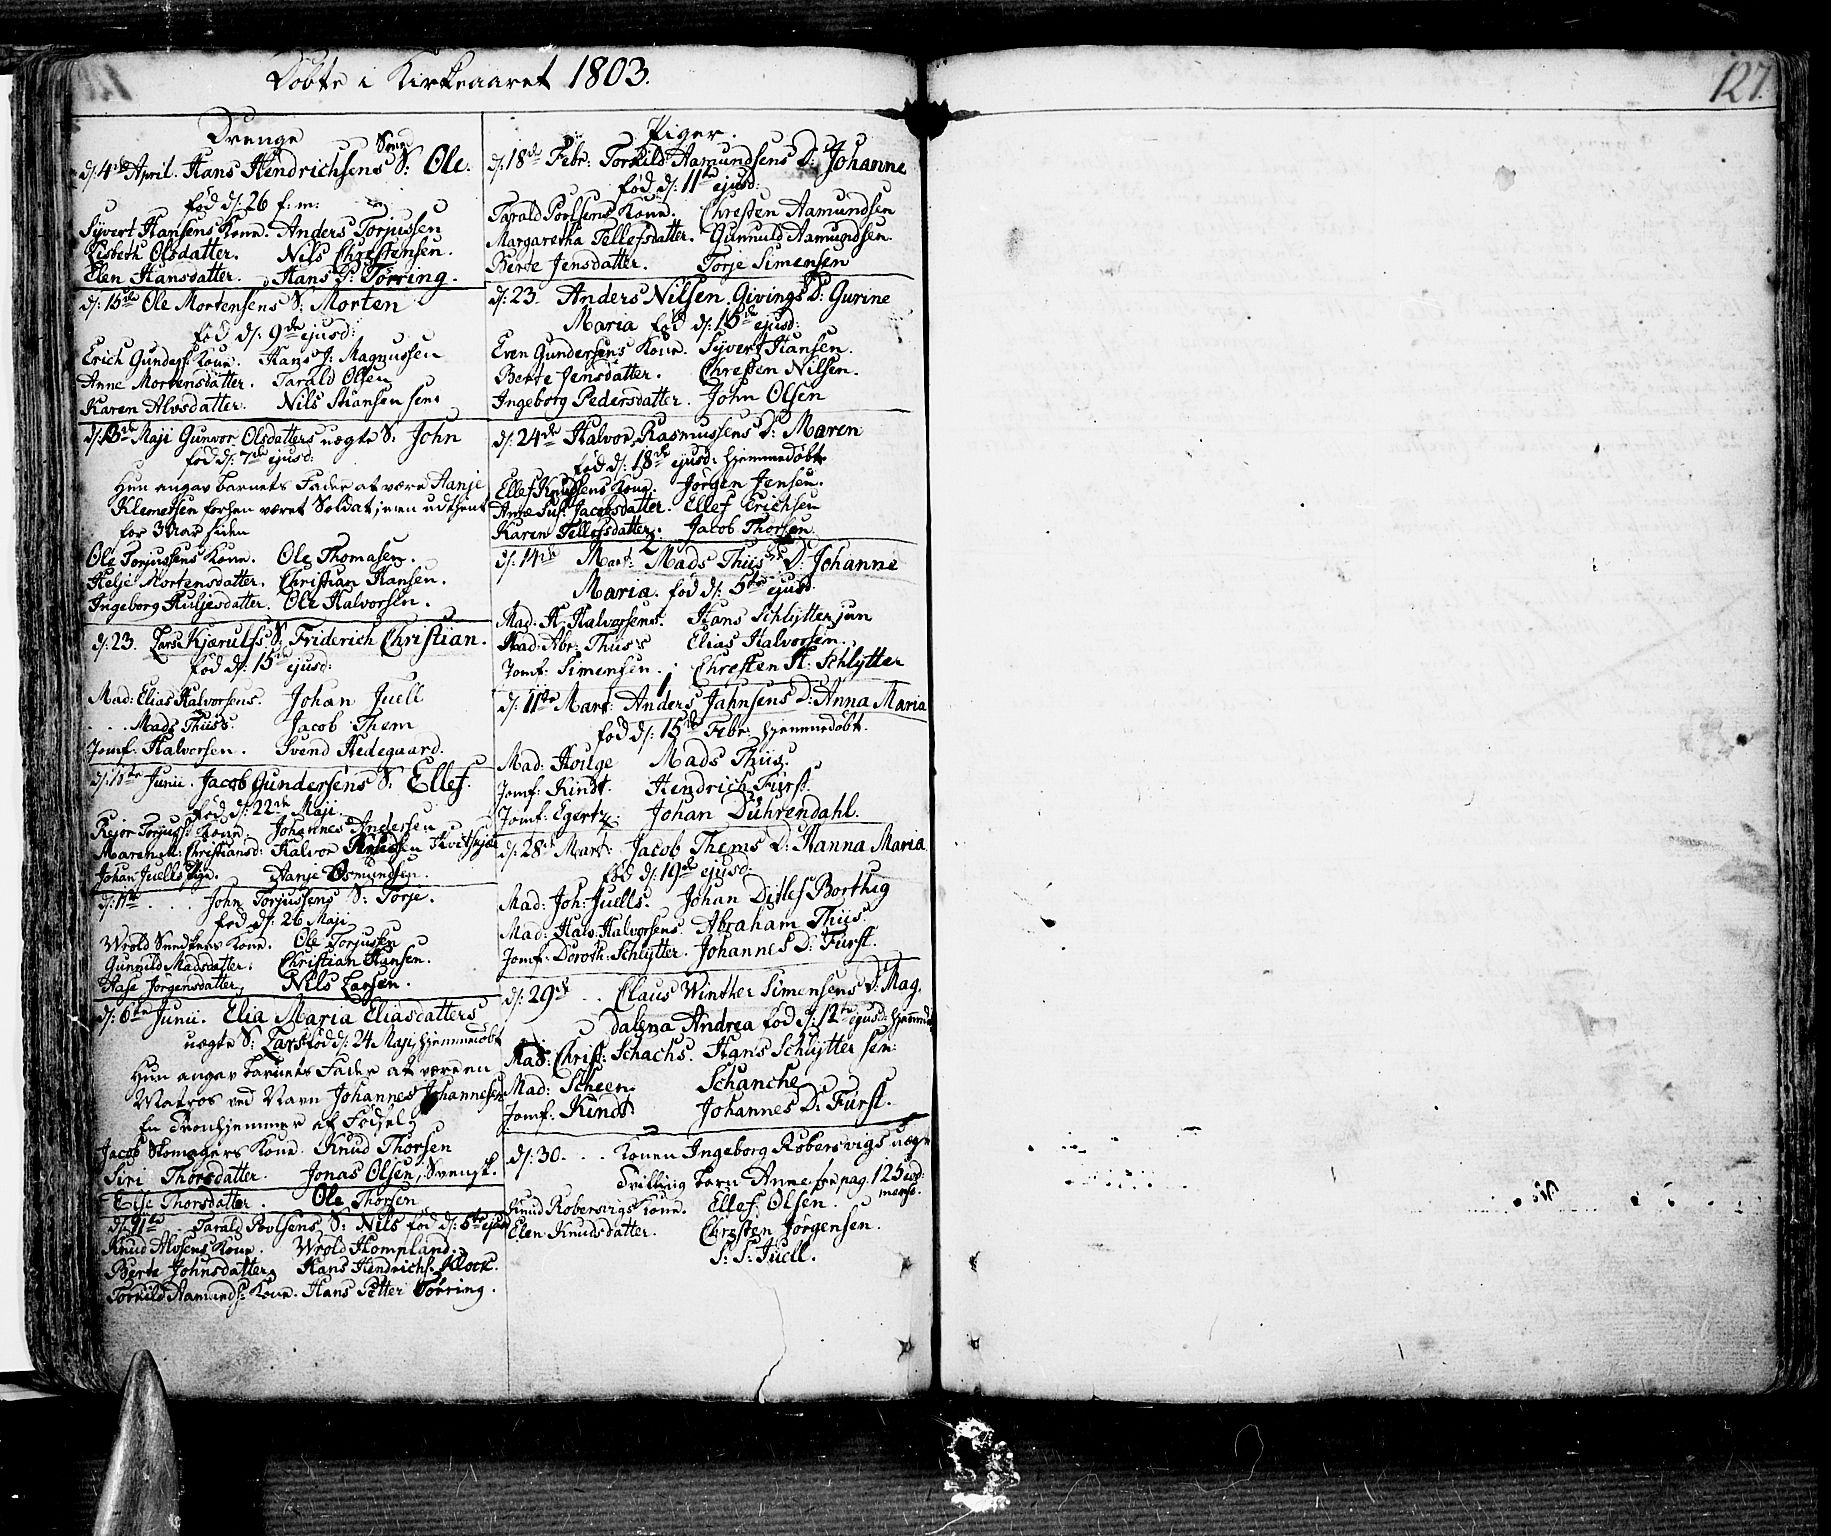 Døbte i Kirkeaaret 1803.
127.
Drenge
Smed
d: 4de April. Hans Hendrichsens S: Ole.
fød d: 26 f: m:
Syvert Hansens Kone. Anders Torjussen
Lisbeth Olsdatter. Nils Christensen.
Elen Hansdatter. Hans P: Törring.
d: 15de Ole Mortensens S: Morten
fød d: 9de ejusd:
Erich Gunders: Kone. Hans J: Magnussen
Anne Mortensdatter. Tarald Olsen
Karen Alvsdatter. Nils Hansen sen:
d: 13de Maji Gunvor Olsdatters uægte S: John
fød d: 7de ejusd:
Hun angav Barnets Fader at være Aanje
Klemetsen forhen været Soldat, men udtjent
for 3 Aar siden
Ole Torjussens Kone. Ole Thomasen.
Helje Mortensdatter. Christian Hansen.
Ingeborg Huljesdatter. Ole Halvorsen.
d: 23. Lars Kjærulfs S: Friderich Christian.
fød d: 15de ejusd:
Mad: Elias Halvorsens. Johan Juell
... Mads Thiis's. Jacob Them
Jomf: Halvorsen. Svend Hedegaard.
d: 11te Junii. Jacob Gundersens S: Ellef.
fød d: 22de Maji.
Rejer Torjuss: Kone. Johannes Andersen
Maren M: Christiansd: Halvor Knudsen
Johan Juells Pige. Aanje Osmundsen.
d: 11te ... John Torjussens S: Torje.
fød d: 26 Maji
Wrold Snedkers Kone. Ole Torjusen
Gunnild Madsdatter. Christian Hansen.
Aase Jørgensdatter, Nils Larsen.
d: 6te Junii. Elia Maria Eliasdatters
uægte S: Lars fød d: 24 Maji, hjemmedøbt
Hun angav Barnets Fader at være en
Matros ved Navn Johannes Johannesen
En Tronhjemmer af Fødsel
Jacob Skomagers Kone. Knud Thorsen
Siri Thorsdatter. Jonas Olsen, Svensk.
Else Thorsdatter. Ole Thorsen
d: 21de .. Tarald Povlsens S: Nils fød d: 5te ejusd
Knud Alvsens Kone. Wrold Hompland.
Berte Johnsdatter, Hans Hendrichs: Klock.
Torkild Aamunds: Kone. Hans Petter Törring.
Piger.
d: 18de Febr: Torkild Aamundsens D: Johanne
fød d: 11te ejusd:
Tarald Povlsens Kone. Chresten Aamundsen
Margaretha Tellefsdatter. Gunnuld Aamundsen.
Berte Jensdatter. Torje Simensen
d: 23. Anders Nilsen Givings D: Gurine
Maria fød d: 15de ejusd:
Even Gundersens Kone. Syvert Hansen.
Berte Jensdatter. Chresten Nilsen.
Ingeborg Pedersdatter. John Olsen
d: 24de Halvor Rasmussens D: Maren
fød d: 18de ejusd: hjemmedøbt
Ellef Knudsens Kone. Jørgen Jensen.
Anne Sus: Jacobsdatter. Ellef Erichsen
Karen Tellefsdatter. Jacob Thorsen
2
d: 14de Mart: Mads Thiis's D: Johanne
Maria. fød d: 5te ejusd:
Mad: H: Halvorsens. Hans Schlytter jun
Mad: Abr: Thiis's Elias Halvorsen.
Jomf: Simensen. Chresten H: Schlytter
1
d: 11te Mart: Anders Jahnsens D: Anna Maria
fød d: 15de Febr. hjemmedøbt.
Mad: Hoilge Mads Thiis.
Jomf: Kindt. Hendrich Fürst.
Jomf: Egertz. Johan Duhrendahl.
d: 28de Mart: Jacob Thems D: Hanna Maria
fød d: 19de ejusd:
Mad: Joh: Juells. Johan Ditlef Borthig
Mad: Halv: Halvorsens. Abraham Thiis.
Jomf: Doroth: Schlytter. Johannes D: Fürst.
d: 29de .. Claus Winther Simensens D: Mag.
dalena Andrea fød d: 12te ejusd: hjemmed
Mad: Christ: Schachs. Hans Schlytter sen:
Mad: Scheen. Schanche
Jomf: Kindt Johannes D: Fürst.
d: 30. ... Konen Ingeborg Robersvigs uægte
Trilling Barn Anne see pag. 125 eod:
mense.
Knud Robersvigs Kone. Ellef Olsen.
Elen Knudsdatter. Chresten Jörgensen.
S: S: Juell.